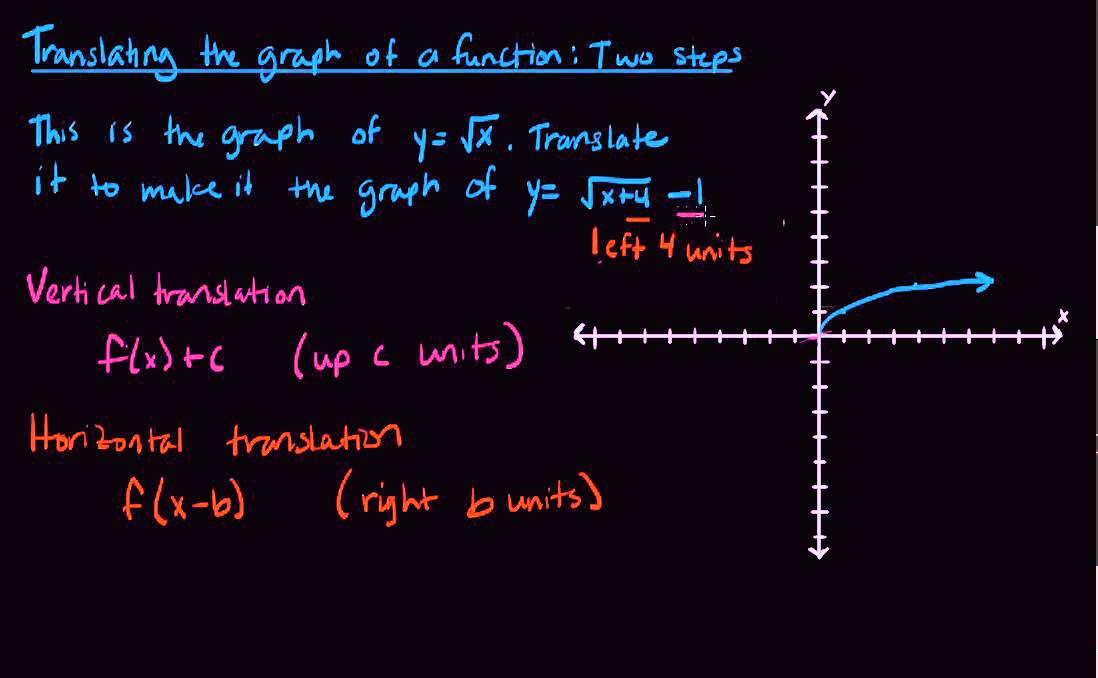 Translating the graph of a function: Two steps
This is the graph of y=√x. Translate
it to make it the graph of y= √x+4 -1
left 4 units
Vertical translation
f(x)+c (up c units)
Horizontal translation
f(x-b) (right b units)
y
x